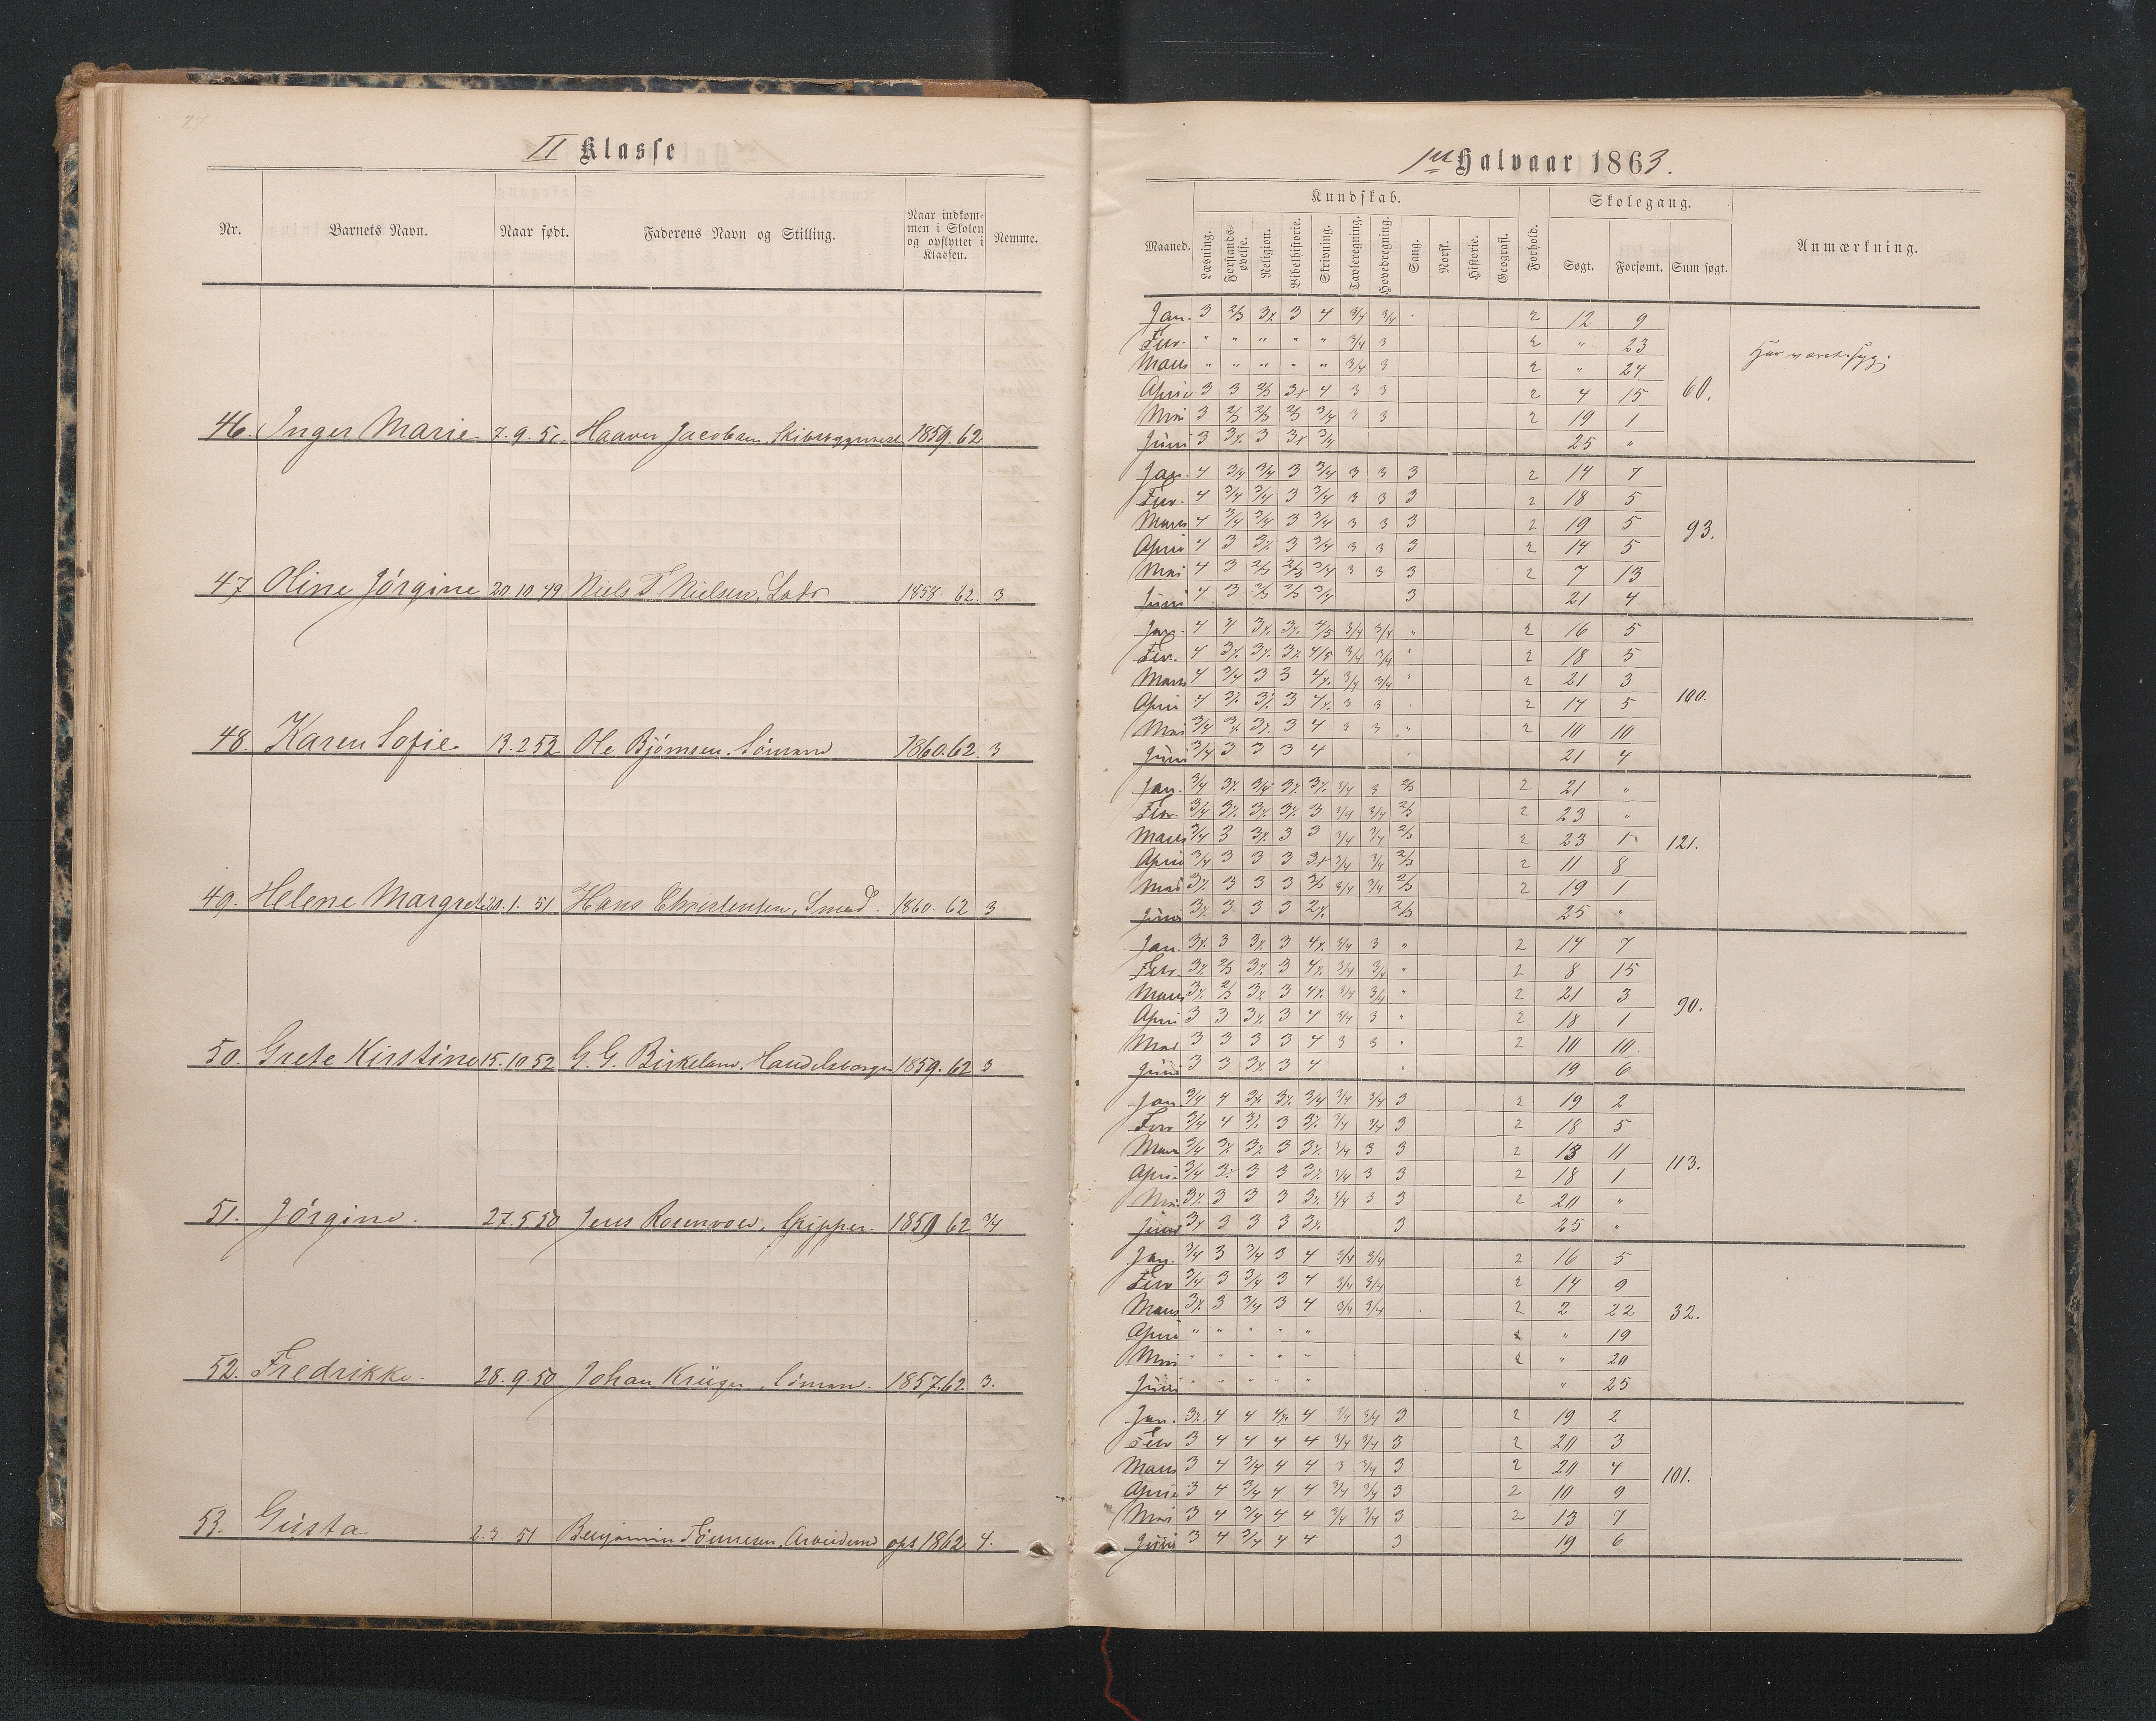 27
II Klasse
Nr. Barnets Navn. Naar født. Faderens Navn og Stilling. Naar indkommen i Skolen og opflyttet i Klassen. Nemme.
46. Inger Marie 7. 9. 50 Haaver Jacobsen, 1859. 62
47 Oline Jórgine 20. 10. 49 Niels T Nielsen, Lods 1858. 62. 3
48. Karen Sofie. 13. 2 52 Ole Bjórnsen, Sómand 1860. 62. 3
49. Helene Margrete 20. 1. 51 Hans Christensen, Smed. 1860. 62 3
50. Grete Kirstine 15. 10 52 G. G. Birkeland, Handelsborger 1859. 62 3
51. Jórgine. 27. 5 50 Jens Rosenvold, Skipper. 1859 62 3/4
52. Fredrikke. 28. 9. 50 Johan Krüger, Sómand. 1857. 62 3.
53. Gusta 2. 3. 51 Benjamin Tónnesen, Arbeidsmd ops 1862. 4.
1ste Halvaar 1863.
Kundskab. Skolegang.
Maaned. Læsning. Forstandsøvelse. Religion. Bibelhistorie. Skrivning. Tavleregning. Hovedregning. Sang. Norsk. Historie. Geografi. Forhold. Søgt. Forsømt. Sum søgt. Anmærkning.
Jan. 3 2/3 3x 3 4 3/4 3/4 2 12 9
Febr. " " " " " 3/4 3 2 " 23 Har været syg.
Marts " " " " " 3/4 3 2 " 24
April 3 3 2/3 3x 4 3 3 2 4 15 60.
Mai 3 2/3 2/3 2/3 3/4 3 3 2 19 1
Juni 3 3x 3 3x 3/4 25 "
Jan. 4 3/4 3/4 3 3/4 3 3 3 2 14 7
Febr. 4 3/4 3/4 3 3/4 3 3 3 2 18 5
Marts 4 3/4 3/4 3 3/4 3 3 3 2 19 5 93.
April 4 3 3x 3 3/4 3 3 3 2 14 5
Mai 4 3 2/3 2/3 3/4 3 3 3 2 7 13
Juni 4 3 2/3 2/3 3/4 3 21 4
Jan. 4 4 3x 3x 4/5 3/4 3/4 " 2 16 5
Febr. 4 3x 3x 3x 4/5 3/4 3/4 " 2 18 5
Marts 4 3/4 3 3 4x 3/4 3/4 " 2 21 3
April 4 3x 3x 3 4x 3 3 2 14 5 100.
Mai 3/4 3x 3x 3 4 3 3 " 2 10 10
Juni 3/4 3 3 3 4 21 4
Jan. 3/4 3x 3/4 3x 3x 3/4 3 2/3 2 21 "
Febr. 3/4 3x 3x 3x 3 3/4 3/4 2/3 2 23 "
Marts 3/4 3 3x 3 3 3/4 3/4 2/3 2 23 1 121.
April 3/4 3 3 3 3x 3/4 3/4 2/3 2 11 8
Mai 3x 3 3 3 2/3 3/4 3/4 2/3 2 19 1
Juni 3x 3 3 3 2x 2/3 25 "
Jan. 3x 3 3x 3 4x 3/4 3 " 2 14 7
Febr. 3x 2/3 3x 3 4x 3/4 3/4 " 2 8 15
Marts 3x 2/3 3x 3 4x 3/4 3/4 " 2 21 3
April 3 3 3x 3 4 3/4 3 " 2 18 1 90.
Mai 3 3 3 3 4 3 3 " 2 10 10
Juni 3 3 3x 3 4 " 19 6
Jan. 3/4 4 3x 3x 3/4 3/4 3/4 3 2 19 2
Febr 3/4 4 3x 3 3x 3/4 3/4 3 2 18 5
Marts 3/4 3x 3x 3 3x 3/4 3 3 2 13 11
April 3/4 3x 3 3 3x 3/4 3 3 2 18 1 113.
Mai 3x 3 3 3 3x 3/4 3 3 2 20 "
Juni 3x 3 3 3 3x 3 25 "
Jan. 3/4 3 3/4 3 4 3/4 3/4 2 16 5
Febr 3/4 3 3/4 3 4 3/4 3/4 2 14 9
Marts 3x 3 3/4 3 4 3/4 3/4 2 2 22 32.
April " " " " " 2 " 19
Mai " " " " " 2 " 20
Juni " " " " " " 25
Jan. 3x 4 4 4x 4 3/4 3/4 3 2 19 2
Febr 3 4 4 4 4 3/4 3/4 3 2 20 3
Marts 3 4 3/4 4 4 3 3/4 3 2 20 4 101.
April 3 4 3/4 4 4 3/4 3/4 3 2 10 9
Mai 3 4 3/4 4 4 3/4 3/4 3 2 13 7
Juni 3 4 3/4 4 4 3 19 6